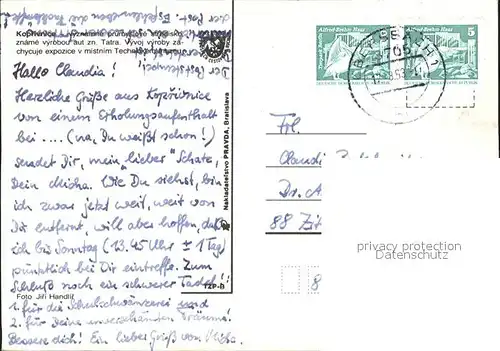 Kopřivnice
známé výrobou aut zn. Tatra. Vývoj výroby za-
chycuje expozice v místním Techn
Hallo Claudia!
Herzliche Grüße aus Kopřivnice
von einem Erholungsaufenthalt
bei .... (na, Du weißt schon!)
sendet Dir, mein "lieber" Schatz,
Dein Micha. Wie Du siehst, bin
ich zwar jetzt weit, weit von
Dir entfernt, will aber hoffen, daß
ich bis Sonntag (13.45 Uhr ± 1 Tag)
pünktlich bei Dir eintreffe. Zum
Schluß noch ein schwerer Tadel!!
1. für die Schulschwänzerei und
2. für Deine unverschämten Träume!
Bessere dich! Ein lieber Gruß von Micha.
Foto Jiří Handlíř
TZP-B
Nakladatelství PRAVDA, Bratislava
Alfred-Brehm-Haus
Alfred-Brehm-Haus
5
Frl.
Claudi
Dr. A
88 Zit
8
privacy protection
Datenschutz